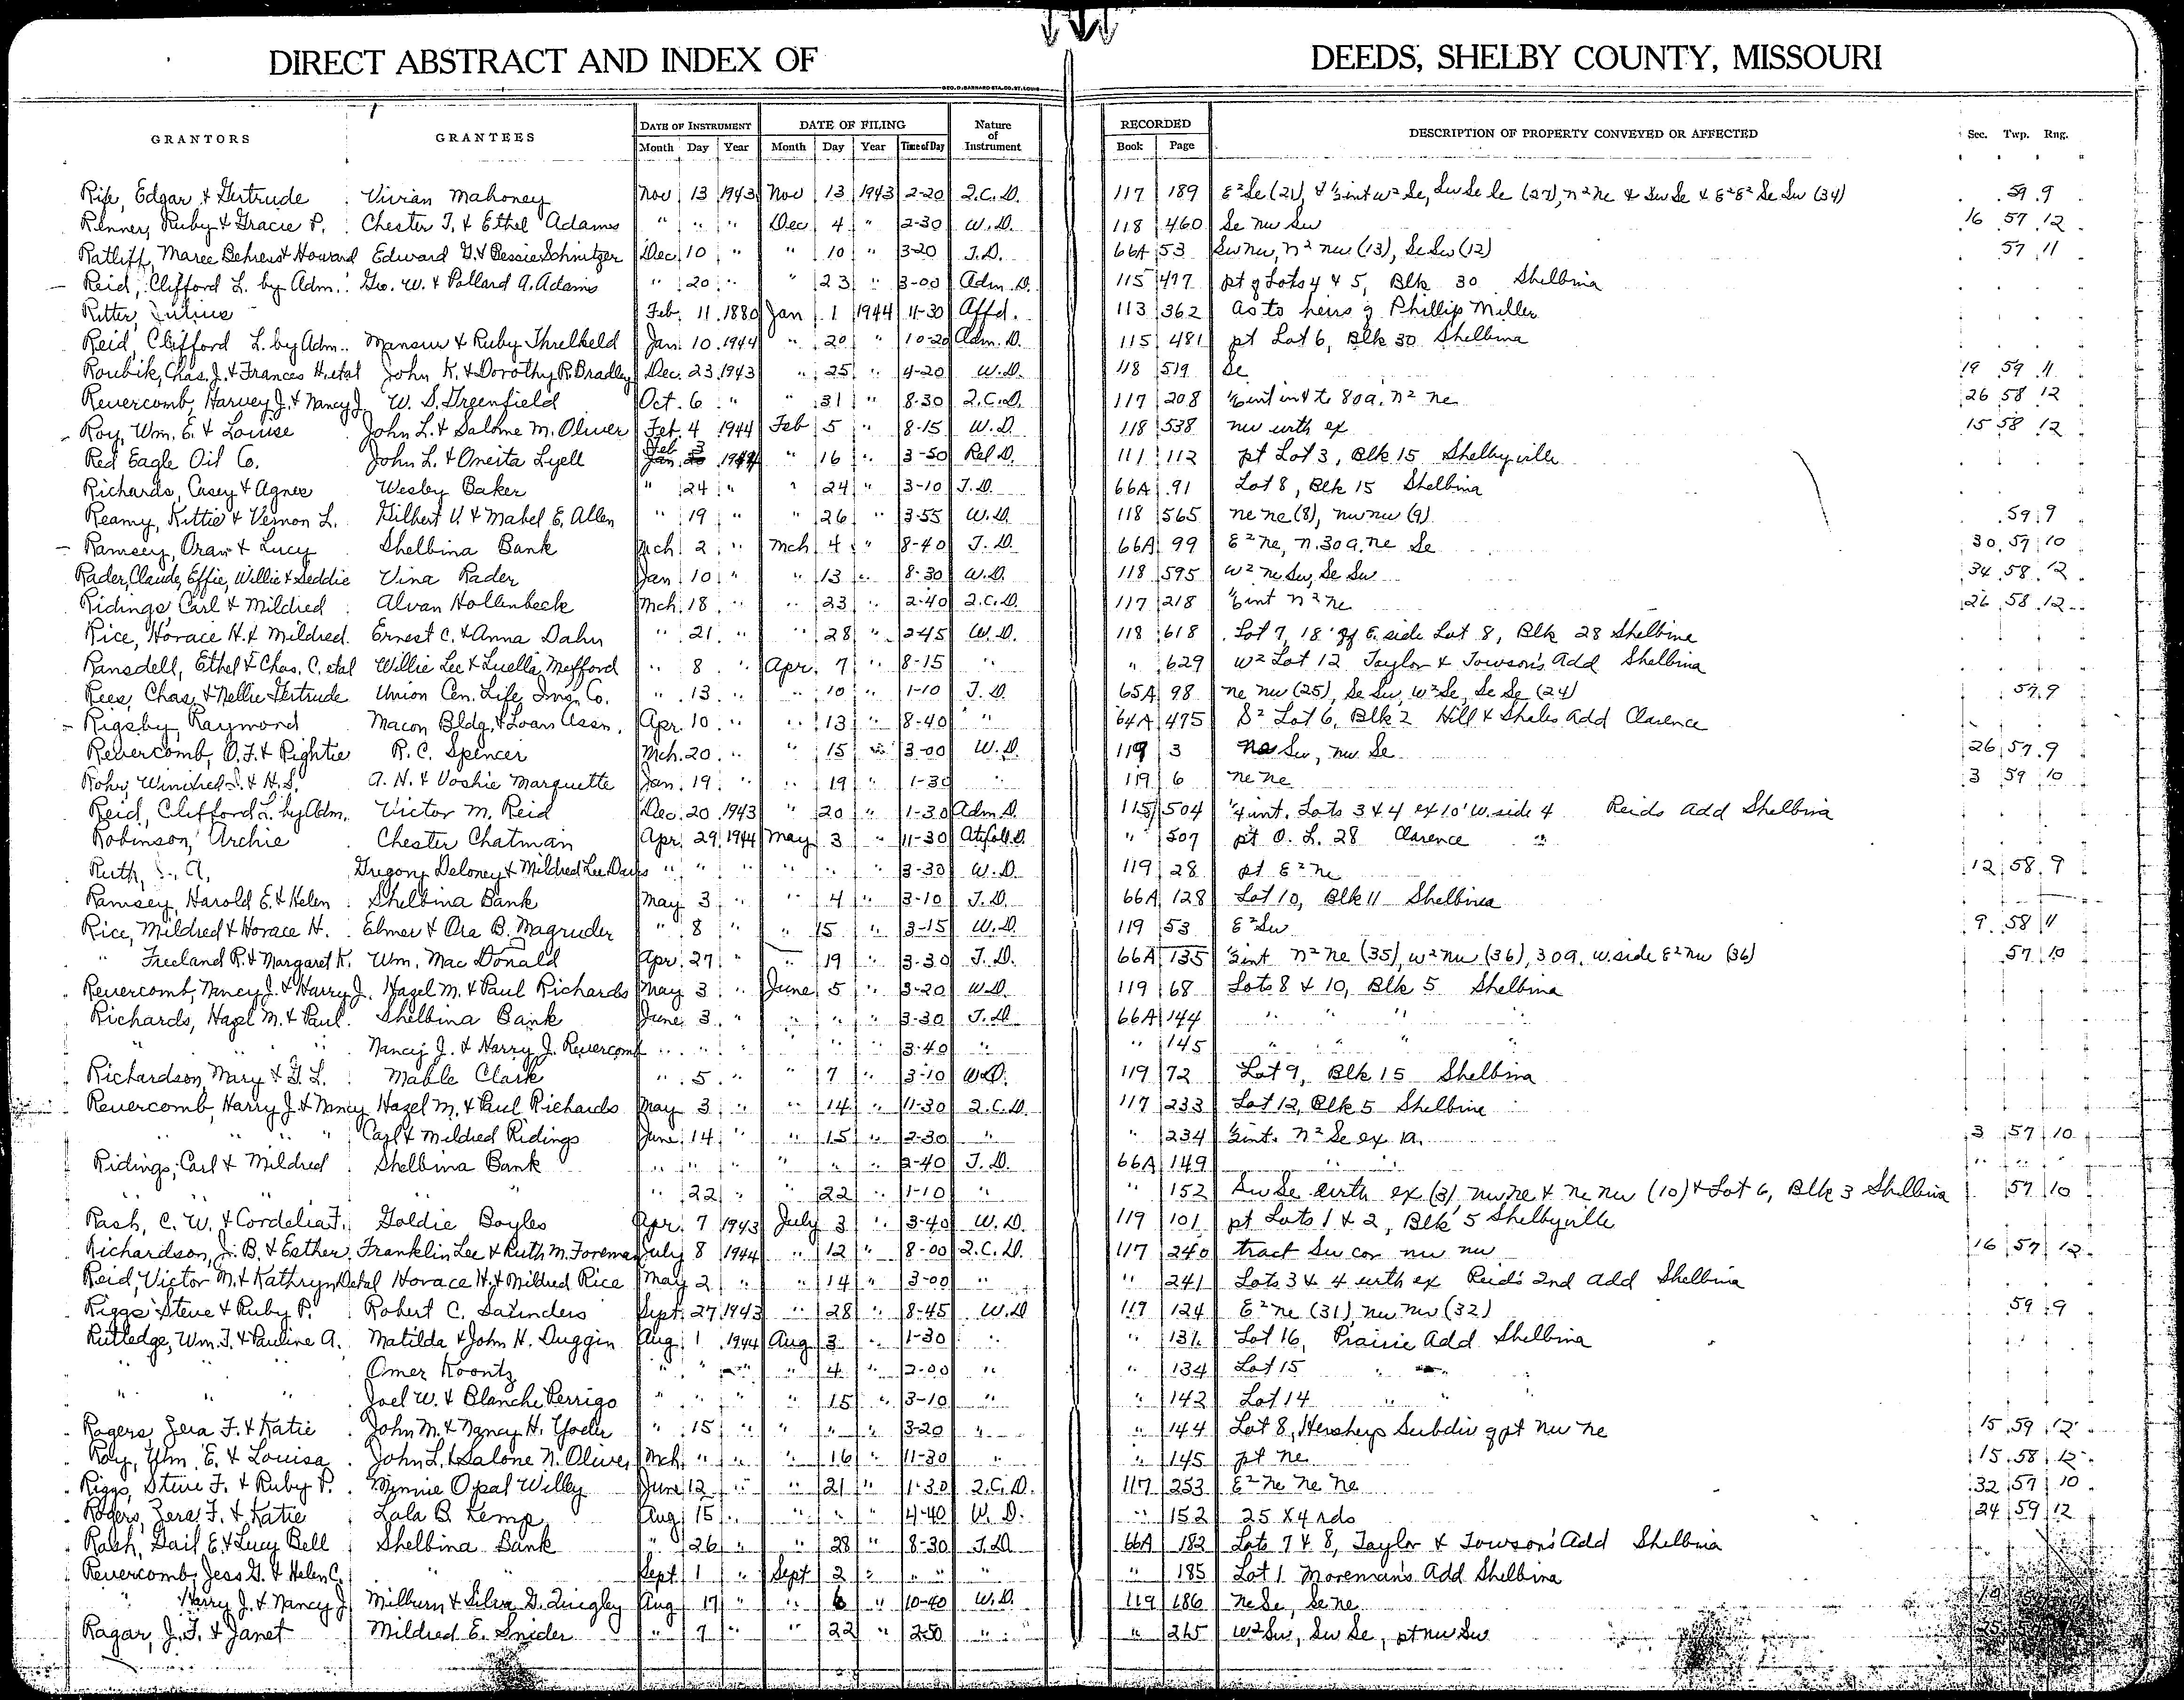 DIRECT ABSTRACT AND INDEX OF DEEDS, SHELBY COUNTY, MISSOURI
GEO. D. BARNARD STA. CO. ST. LOUIS
GRANTORS GRANTEES DATE OF INSTRUMENT DATE OF FILING Nature of Instrument RECORDED DESCRIPTION OF PROPERTY CONVEYED OR AFFECTED Sec. Twp. Rng.
Month Day Year Month Day Year Time of Day Book Page
Rife, Edgar & Gertrude Vivian Mahoney Nov 13 1943 Nov 13 1943 2-20 Q.C.D. 117 189 E²Se (21), & ½int W² Se, Sw Se Se (27), n² ne & Sw Se & E²E² Se Sw (34) 59 9
Renner, Ruby & Gracie P. Chester T. & Ethel Adams " " " Dec 4 " 2-30 W.D. 118 460 Se nw Sw 16 57 12
Ratliff, Maree Behrens & Howard Edward G. & Bessie Schnitzer Dec 10 " " 10 " 3-20 T.D. 66A 53 Sw nw, n² nw (13), Se Sw (12) 57 11
Reid, Clifford L. by Adm. Geo. W. & Pollard A. Adams " 20 " " 23 " 3-00 Adm. D. 115 477 pt of Lots 4 & 5, Blk 30 Shelbina
Ritter, Julius Feb. 11 1880 Jan 1 1944 11-30 Affd. 113 362 As to heirs of Phillip Miller
Reid, Clifford L. by Adm. Mansur & Ruby Threlkeld Jan. 10 1944 " 20 " 10-20 Adm. D. 115 481 pt Lot 6, Blk 30 Shelbina
Roubik, Chas. J. & Frances H. etal John K. & Dorothy R. Bradley Dec. 23 1943 " 25 " 4-20 W.D. 118 519 Se 19 59 11
Revercomb, Harvey J. & Nancy J. W. S. Greenfield Oct. 6 " " 31 " 8-30 Q.C.D. 117 208 int in & to 80a. n² ne 26 58 12
Roy, Wm. E. & Louise John L. & Salome M. Oliver Feb. 4 1944 Feb 5 " 8-15 W.D. 118 538 nw with ex 15 58 12
Red Eagle Oil Co. John L. & Oneita Lyell Feb 3 1944 " 16 " 3-50 Rel D. 111 112 pt Lot 3, Blk 15 Shelbyville
Richards, Casey & Agnes Wesley Baker " 24 " " 24 " 3-10 T.D. 66A 91 Lot 8, Blk 15 Shelbina
Reamy, Kittie & Vernon L. Gilbert V. & Mabel E. Allen " 19 " " 26 " 3-55 W.D. 118 565 ne ne (8), nw nw (9) 59 9
Ramsey, Oran & Lucy Shelbina Bank Mch 2 " Mch 4 " 8-40 T.D. 66A 99 E² ne, n. 30 a. ne Se 30 59 10
Rader, Claude, Effie, Willie & Seddie Vina Rader Jan 10 " " 13 " 8-30 W.D. 118 595 W² ne Sw, Se Sw 34 58 12
Ridings Carl & Mildred Alvan Hollenbeck Mch. 18 " " 23 " 2-40 Q.C.D. 117 218 int n² ne 26 58 12
Rice, Horace H. & Mildred Ernest C. & Anna Dahn " 21 " " 28 " 2-45 W.D. 118 618 Lot 7, 18' off E. side Lot 8, Blk 28 Shelbina
Ransdell, Ethel & Chas. C. etal Willie Lee & Luella Mefford " 8 " Apr. 7 " 8-15 " " 629 W² Lot 12 Taylor & Towson's Add Shelbina
Rees, Chas. & Nellie Gertrude Union Cen. Life Ins. Co. " 13 " " 10 " 1-10 T.D. 65A 98 ne nw (25), Se Sw, W² Se, Se Se (24) 57 9
Rigsby, Raymond Macon Bldg. & Loan Assn. Apr. 10 " " 13 " 8-40 " 64A 475 S² Lot 6, Blk 2 Hill & Shales Add Clarence
Revercomb, O.F. & Rightie R. C. Spencer Mch. 20 " " 15 " 3-00 W.D. 119 3 ne Sw, nw Se 26 57 9
Rohr, Winifred S. & H.S. A. H. & Voshie Marquette Jan. 19 " " 19 " 1-30 " 119 6 ne ne 3 59 10
Reid, Clifford L. by Adm. Victor M. Reid Dec. 20 1943 " 20 " 1-30 Adm D. 115 504 ¼int. Lots 3 & 4 ex 10' W. side 4 Reids Add Shelbina
Robinson, Archie Chester Chatman Apr. 29 1944 May 3 " 11-30 " 507 pt O. L. 28 Clarence "
Ruth, A. Gregory Deloney & Mildred Lee Davis " " " " " " 3-30 W.D. 119 28 pt E² ne 12 58 9
Ramsey, Harold E. & Helen Shelbina Bank May 3 " " 4 " 3-10 T.D. 66A 128 Lot 10, Blk 11 Shelbina
Rice, Mildred & Horace H. Elmer & Ora B. Magruder " 8 " " 15 " 3-15 W.D. 119 53 E² Sw 9 58 11
" Freeland R. & Margaret K. Wm. Mac Donald Apr. 27 " " 19 " 3-30 T.D. 66A 135 int n² ne (35), w² nw (36), 30a. w. side E² nw (36) 57 10
Revercomb, Nancy J. & Harry J. Hazel M. & Paul Richards May 3 " June 5 " 3-20 W.D. 119 68 Lots 8 & 10, Blk 5 Shelbina
Richards, Hazel M. & Paul Shelbina Bank June 3 " " " " 3-30 T.D. 66A 144 " " " "
" " " Nancy J. & Harry J. Revercomb " " " " " " 3-40 " " 145 " " " "
Richardson, Mary & G. L. Mable Clark " 5 " " 7 " 3-10 W.D. 119 72 Lot 9, Blk 15 Shelbina
Revercomb, Harry J. & Nancy Hazel M. & Paul Richards May 3 " " 14 " 11-30 Q.C.D. 117 233 Lot 12, Blk 5 Shelbina
" " " " Carl & Mildred Ridings June 14 " " 15 " 2-30 " " 234 int. n² Se ex 1a. 3 57 10
Ridings, Carl & Mildred Shelbina Bank " " " " " " 2-40 T.D. 66A 149 " " " " " "
" " " " " 22 " " 22 " 1-10 " " 152 Sw Se with ex (3) nw ne & ne nw (10) & Lot 6, Blk 3 Shelbina 57 10
Rash, C. W. & Cordelia F. Goldie Boyles Apr. 7 1943 July 3 " 3-40 W.D. 119 101 pt Lots 1 & 2, Blk 5 Shelbyville
Richardson, J. B. & Esther Franklin Lee & Ruth M. Foreman July 8 1944 " 12 " 8-00 Q.C.D. 117 240 tract Sw cor nw nw 16 57 12
Reid, Victor M. & Kathryn D etal Horace H. & Mildred Rice May 2 " " 14 " 3-00 " " 241 Lots 3 & 4 with ex Reid's 2nd Add Shelbina
Riggs Steve & Ruby P. Robert C. Saunders Sept. 27 1943 " 28 " 8-45 W.D 117 124 E² ne (31), nw nw (32) 59 9
Rutledge, Wm. T. & Pauline A. Matilda & John H. Duggin Aug 1 1944 Aug 3 " 1-30 " " 131 Lot 16, Prairie Add Shelbina
" " " Omer Koontz " " " " 4 " 2-00 " " 134 Lot 15 " "
" " " Joel W. & Blanche Perrigo " " " " 15 " 3-10 " " 142 Lot 14 " " "
Rogers, Zera F. & Katie John M. & Nancy H. Yoder " 15 " " " " 3-20 " " 144 Lot 8, Hersheys Subdiv of pt nw ne 15 59 12
Roy, Wm. E. & Louisa John L. & Salone N. Oliver Mch " " " 16 " 11-30 " " 145 pt ne 15 58 12
Riggs, Steve F. & Ruby P. Minnie Opal Willey June 12 " " 21 " 1-30 Q.C.D. 117 253 E² ne ne ne 32 57 10
Rogers, Zera F. & Katie Lala B. Kemp Aug 15 " " " " 4-40 W.D. " 152 25 X 4 rds 24 59 12
Rash, Gail E. & Lucy Bell Shelbina Bank " 26 " " 28 " 8-30 T.D. 66A 182 Lots 7 & 8, Taylor & Towson's Add Shelbina
Revercomb, Jess G. & Helen C. " " Sept 1 " Sept 2 " " " " 185 Lot 1 Moreman's Add Shelbina
" Harry J. & Nancy J. Milburn & Silva G. Quigley Aug 17 " " 6 " 10-40 W.D. 119 186 ne Se, Se ne
Ragar, J. F. & Janet Mildred E. Snider " 7 " " 22 " 2-50 " " 265 W² Sw, Sw Se, pt nw Sw